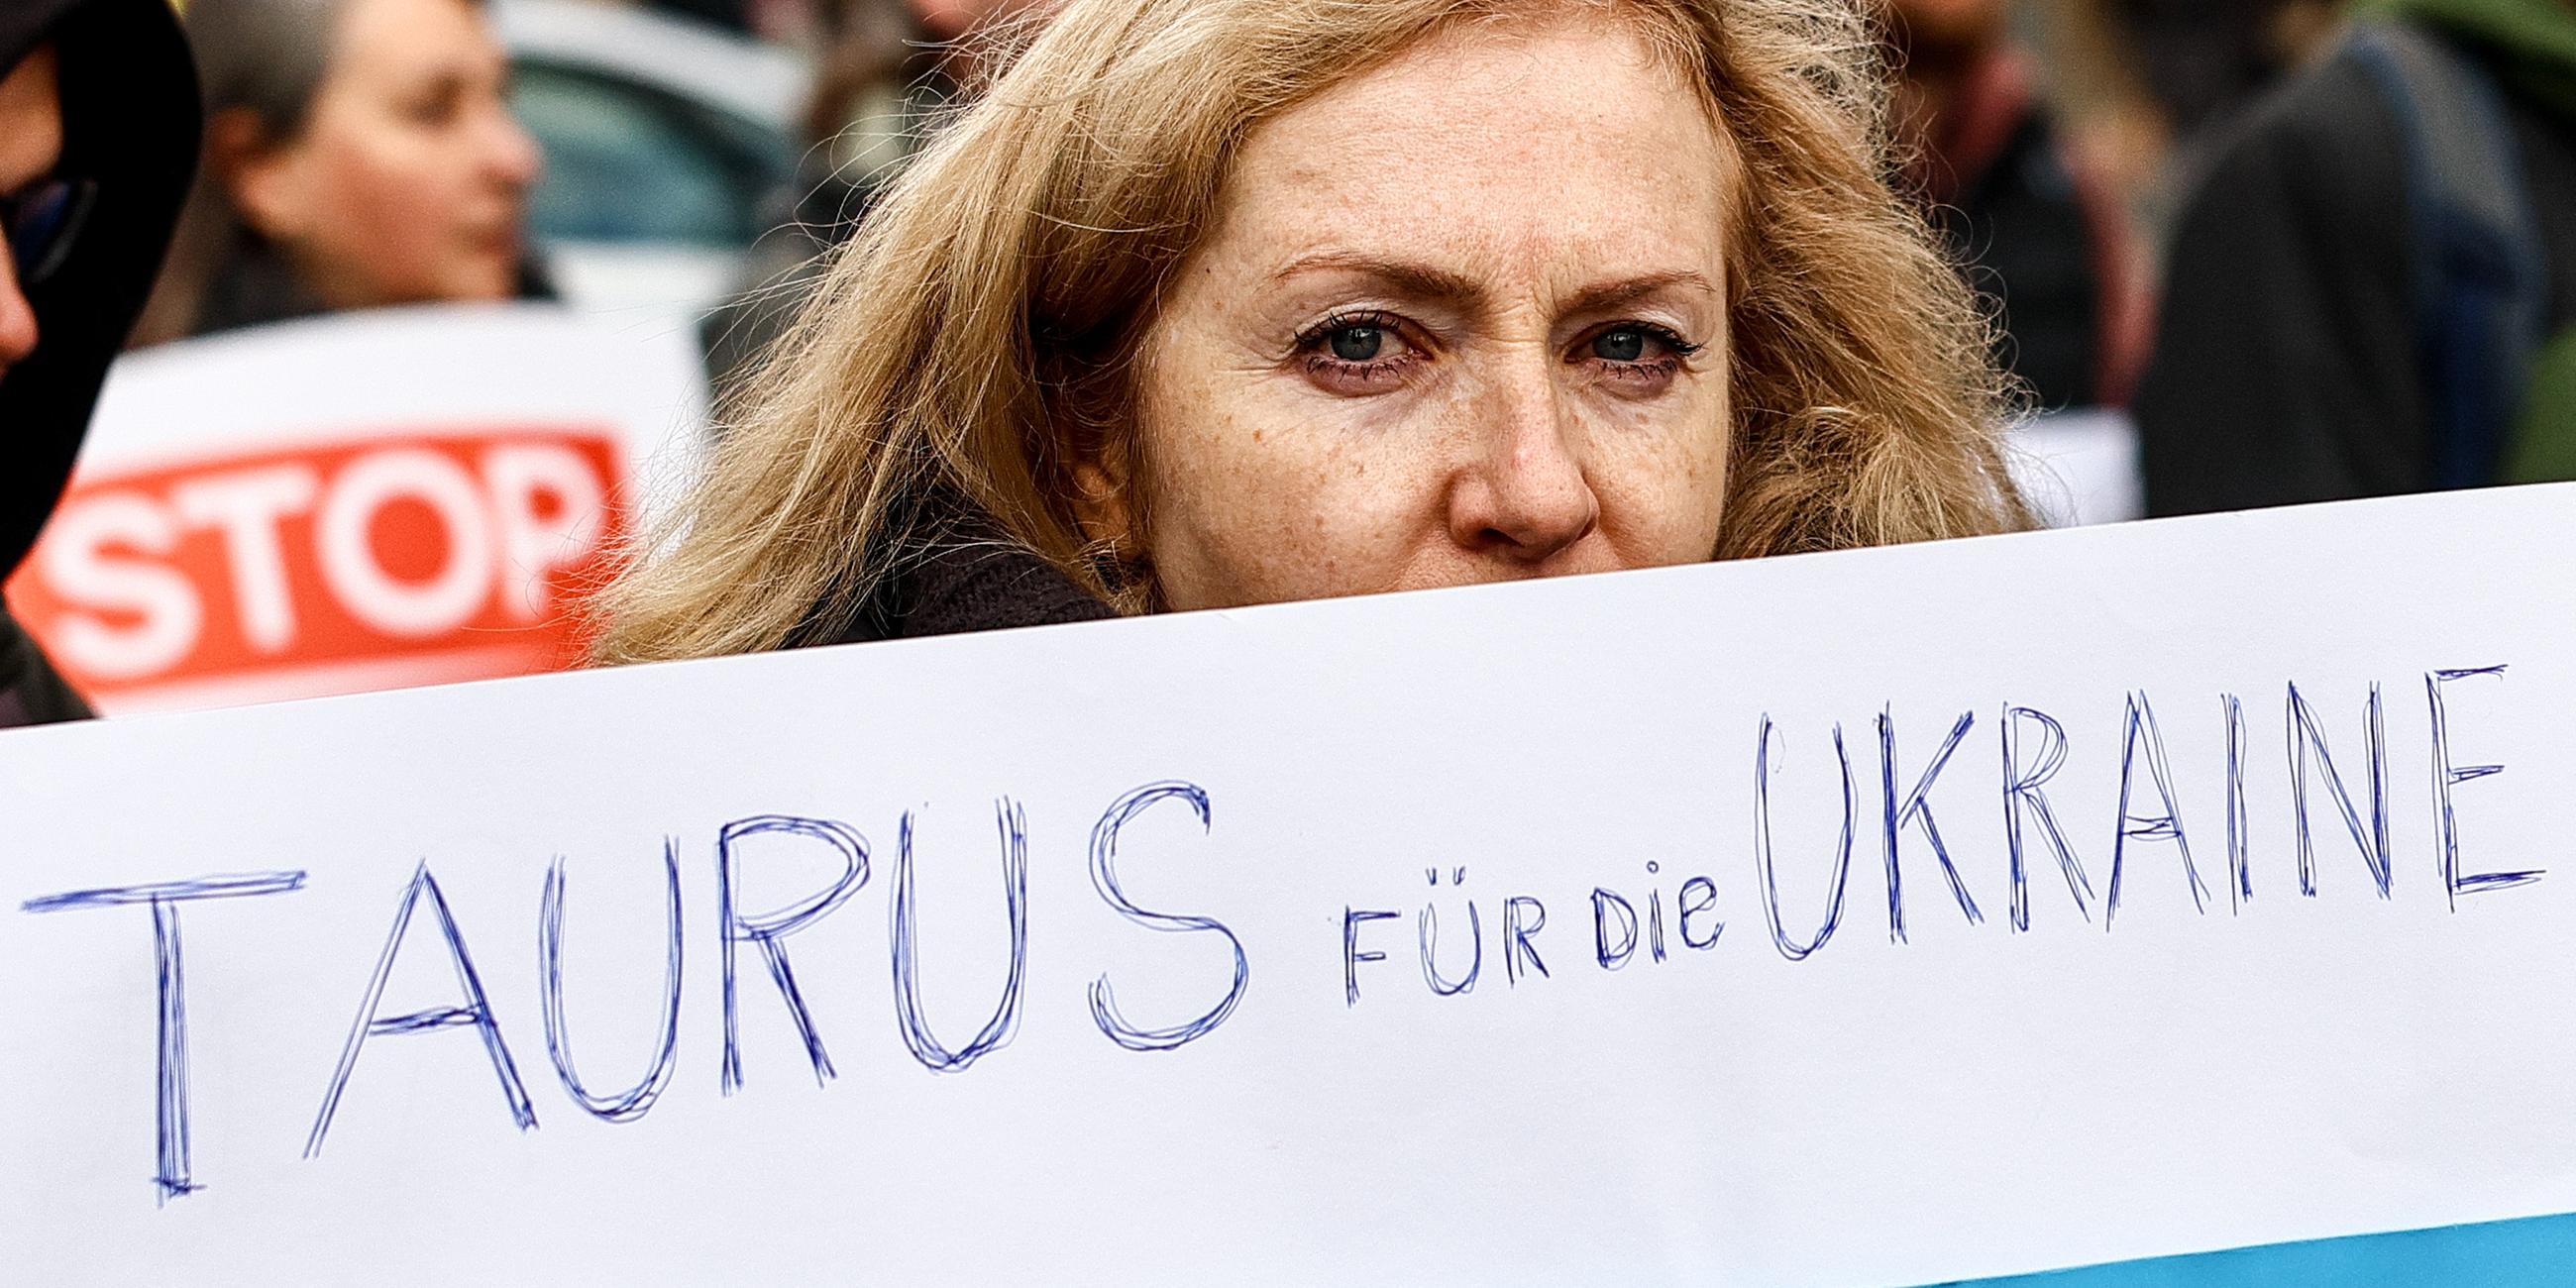 STOP
TAURUS FÜR DIE UKRAINE